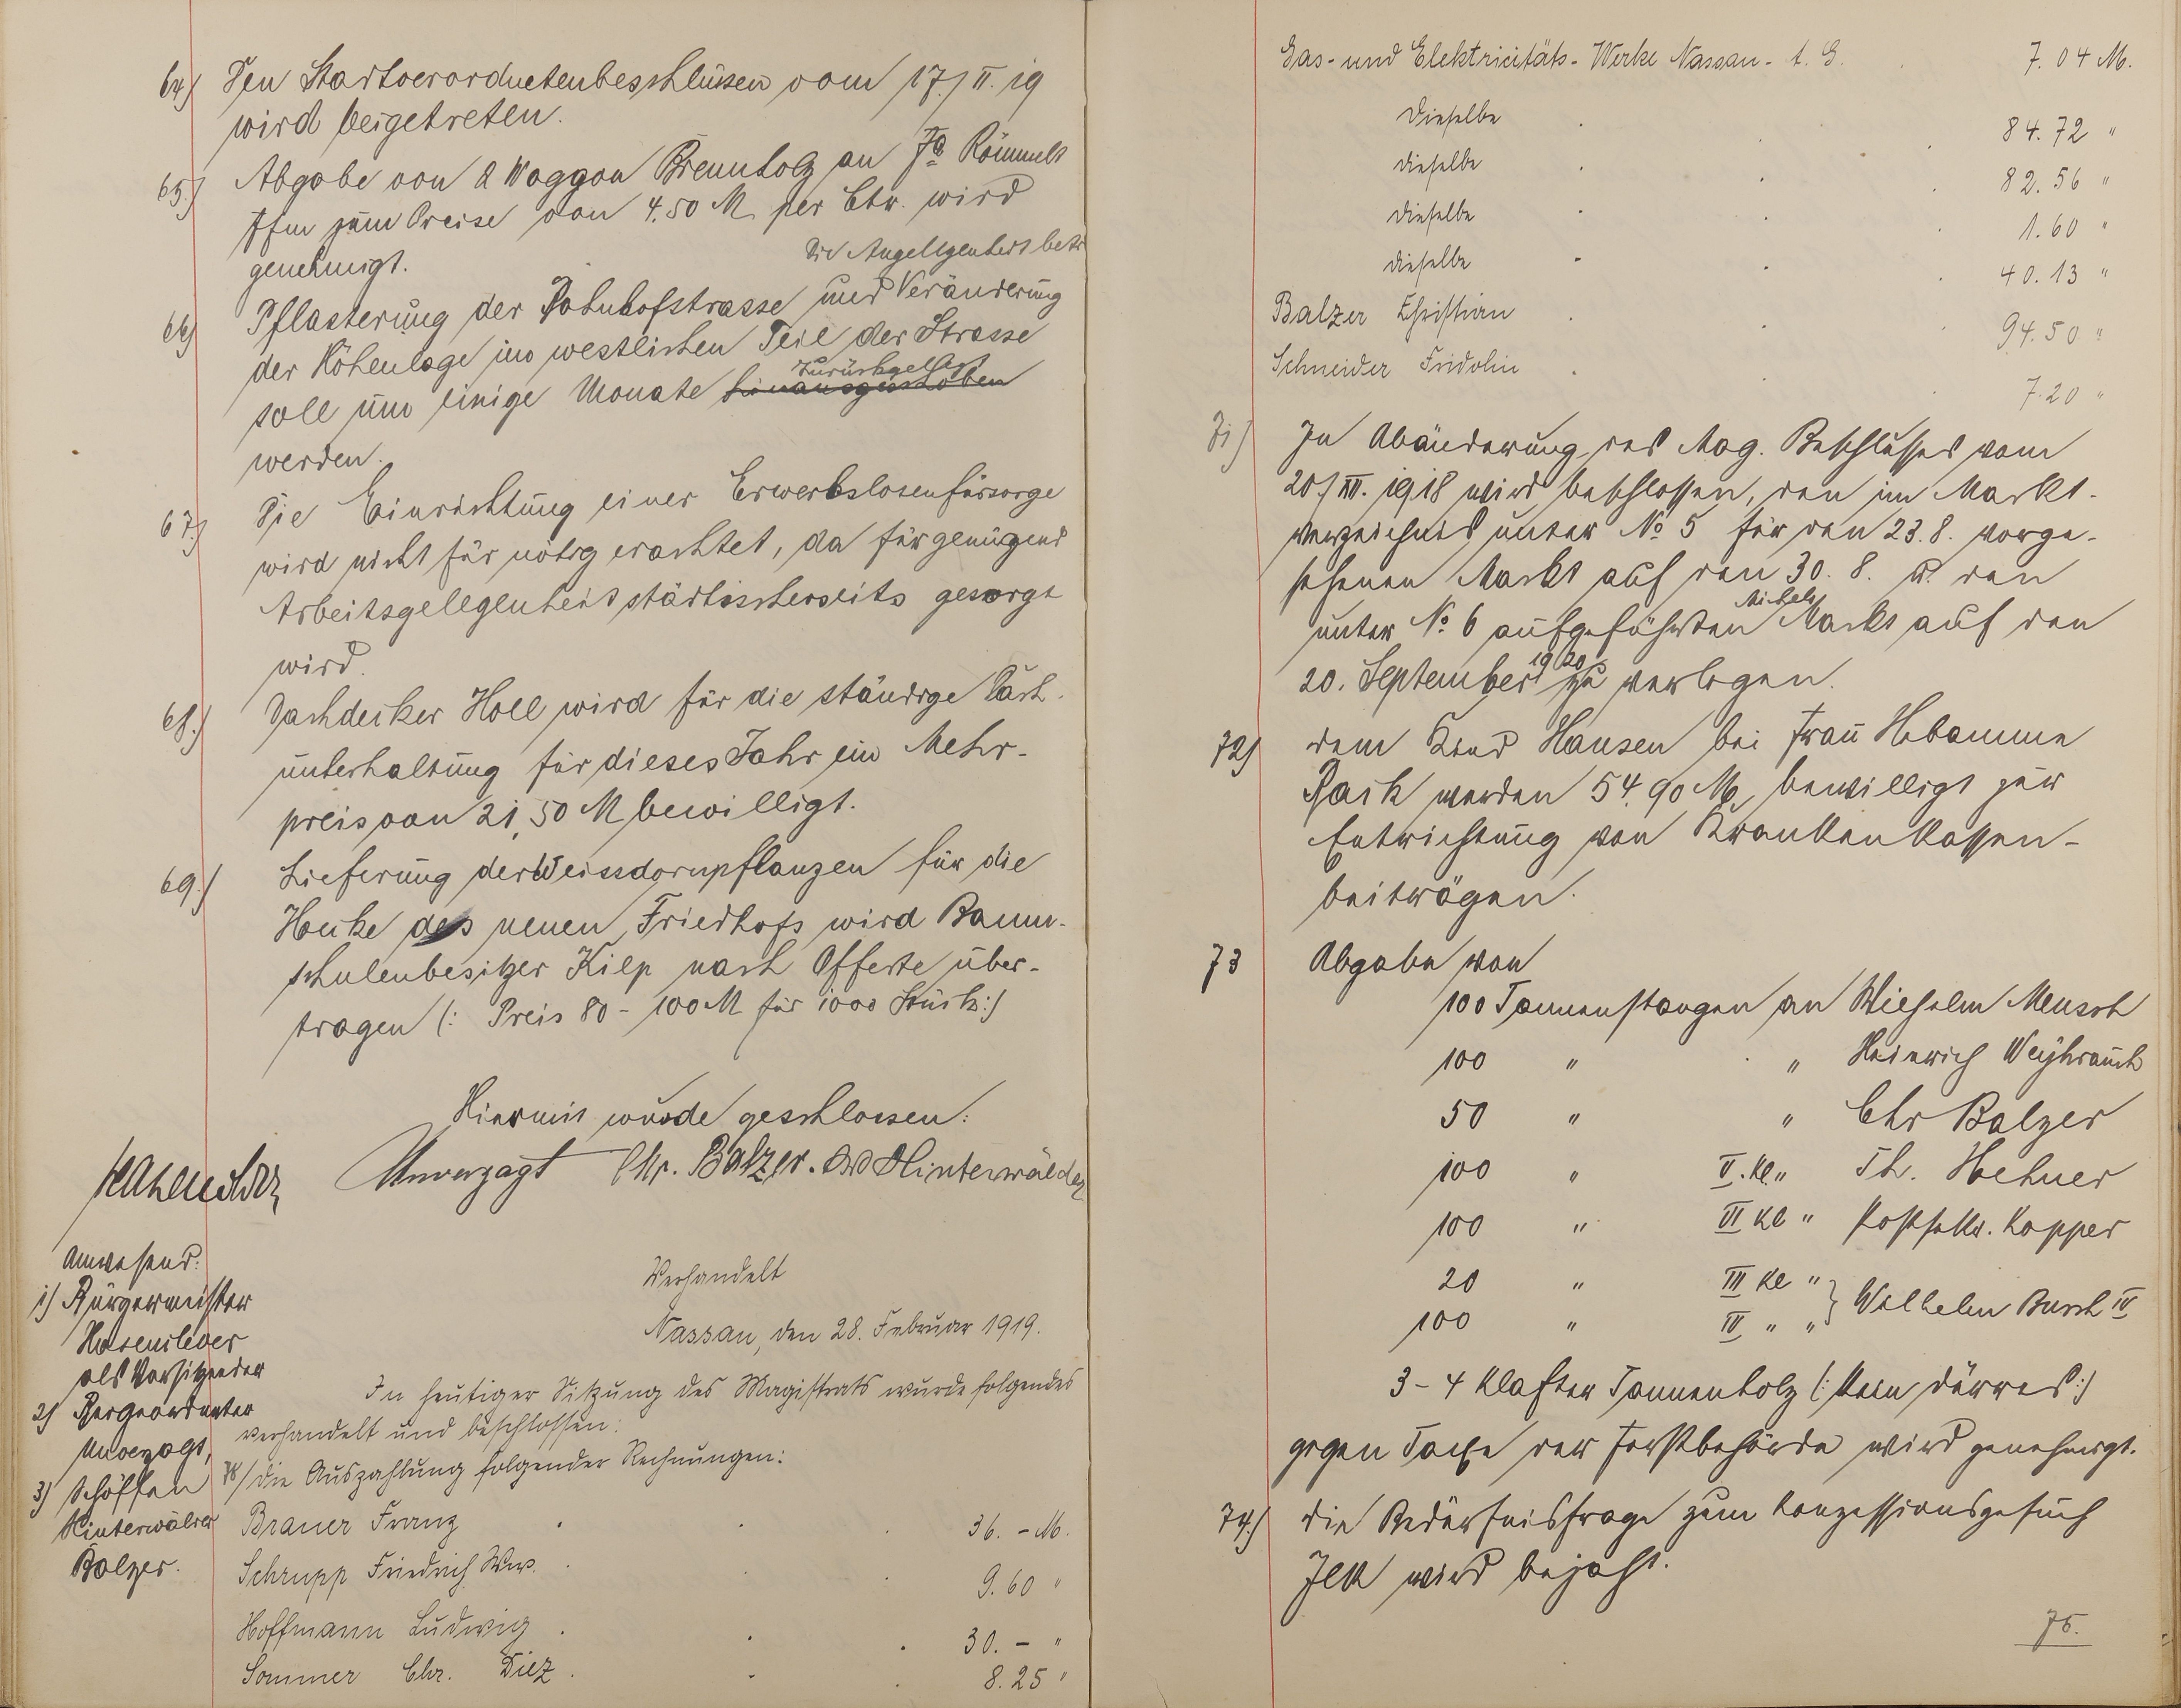 64) Den Stadtverordnetenbeschlüssen vom 17./II. 19
wird beigetreten.
65.) Abgabe von 2 Waggon Brennholz an Fa Römmelt
zum Preise von 4.50 M per Ctr. wird
genehmigt.
Die Angelegenheit betr
66) Pflasterung der Bahnhofstrasse und Veränderung
der Höhenlage im westlichen Teil der Strasse
soll um einige Monate hinausgeschoben zurückgestellt
werden.
67.) Die Einrichtung einer Erwerbslosenfürsorge
wird nicht für nötig erachtet, da für genügend
Arbeitsgelegenheit städtischerseits gesorgt
wird.
68.) Dachdecker Holl wird für die ständige Dach-
unterhaltung für dieses Jahr ein Mehr-
preis von 21,50 M bewilligt.
69.) Lieferung der Weissdornpflanzen für die
Hecke des neuen Friedhofs wird Baum-
schulenbesitzer Kilp nach Offerte über-
tragen (: Preis 80 - 100 M für 1000 Stück :)
Hiermit wurde geschlossen:
Hasenclever Unverzagt Chr. Balzer. Hinterwälder
Anwesend:
1) Bürgermeister
Hasenclever
als Vorsitzender
2) Beigeordneter
Unverzagt,
3) Schöffen
Hinterwälder
Balzer.
Verhandelt
Nassau, den 28. Februar 1919.
In heutiger Sitzung des Magistrats wurde folgendes
verhandelt und beschlossen:
70/ Die Auszahlung folgender Rechnungen:
Brauer Franz . . . 36. – M.
Schrupp Friedrich Ww. . . . 9.60 "
Hoffmann Ludwig . . . 30. – "
Sommer Chr. Diez . . . 8.25 "
Gas- und Elektricitäts-Werke Nassau - A. G. . 7.04 M.
Dieselbe . . . 84.72 "
dieselbe . . . 82.56 "
dieselbe . . . 1.60 "
dieselbe . . . 40.13 "
Balzer Christian . . . 94.50 "
Schneider Fridolin . . . 7.20 "
71) In Abänderung des Mag. Beschlusses vom
20./III. 1918 wird beschlossen, den im Markt-
verzeichnis unter No 5 für den 23.8. vorge-
sehenen Markt auf den 30. 8. u. den
unter No 6 aufgeführten Michels Markt auf den
20. September 1920 zu verlegen.
72) dem Kind Hansen bei Frau Hebamme
Back werden 54.90 M. bewilligt zur
Entrichtung von Krankenkassen-
beiträgen.
73 Abgabe von
100 Tannenstangen an Wilhelm Meusch
100 " " Heinrich Weyhrauch
50 " " Chr Balzer
100 " V. Kl. " Th. Hehner
100 " VI Kl " Postsekr. Kopper
20 " III Kl " } Wilhelm Busch IV
100 " IV " "
3 - 4 Klafter Tannenholz (: kein dürres :)
gegen Taxe der Forstbehörde wird genehmigt.
74.) Die Bedürfnisfrage zum Konzessionsgesuch
Ilk wird bejaht.
75.